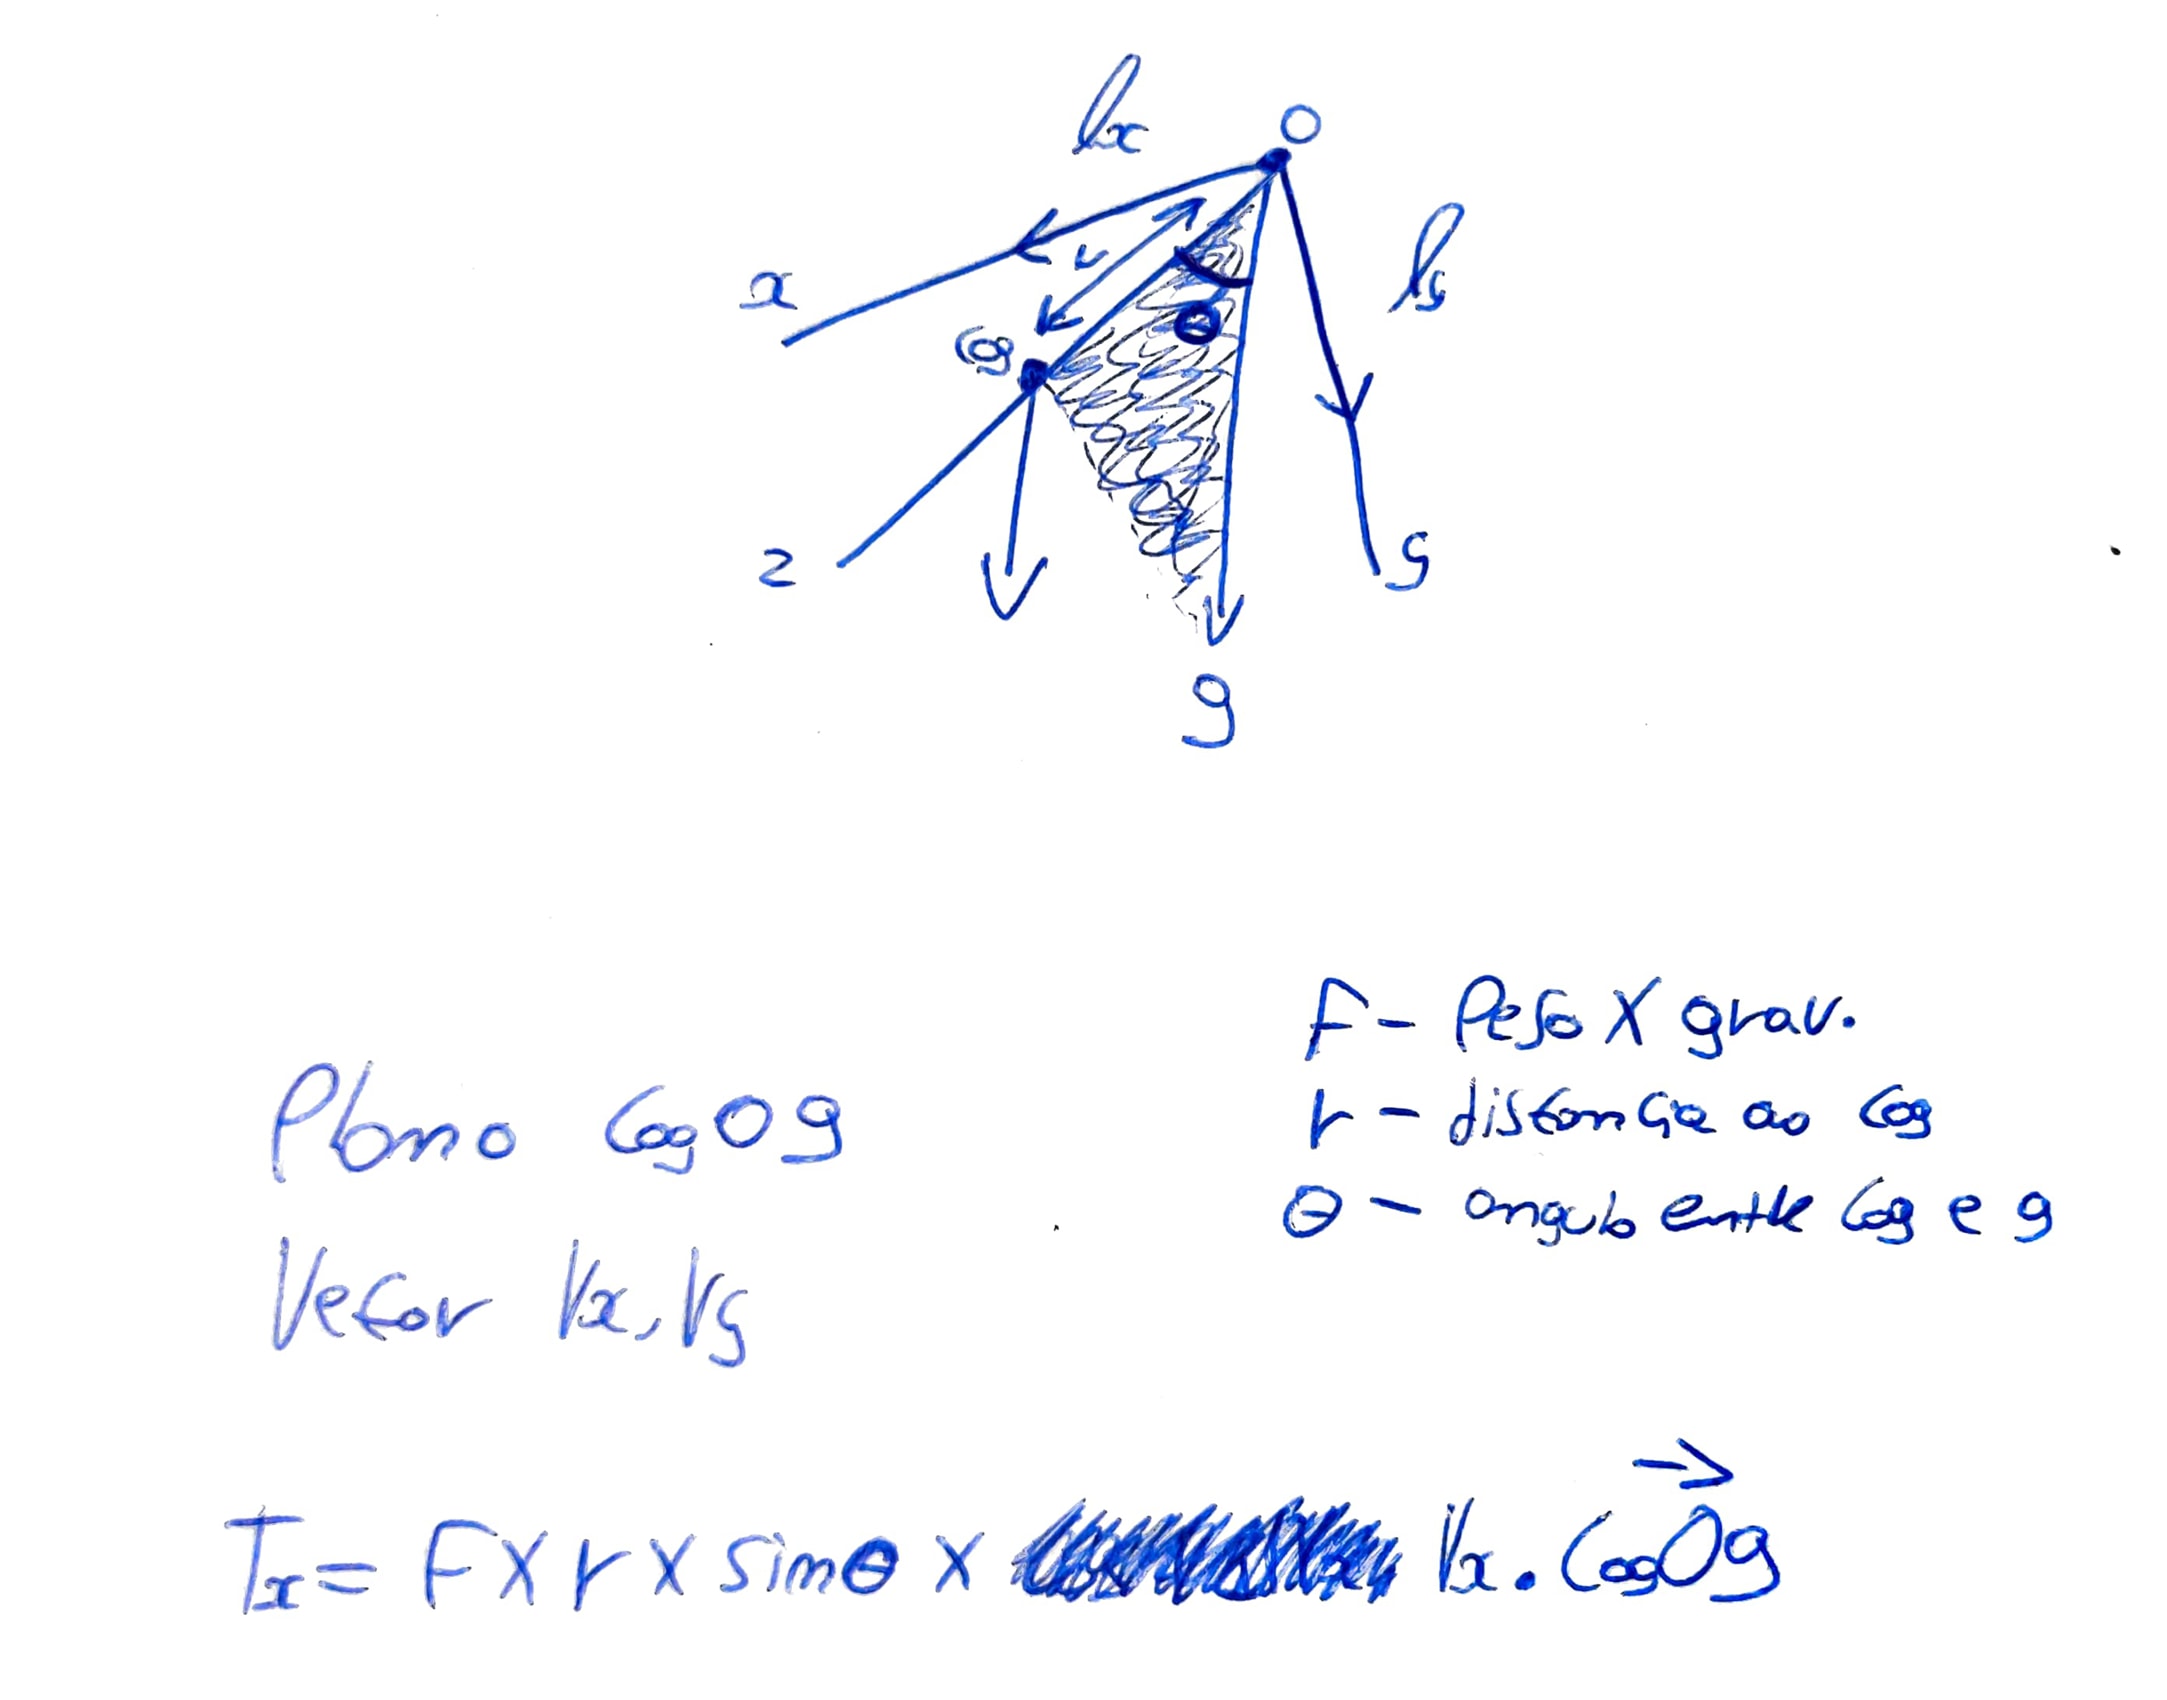 O
Vx
Vy
r
x
Cog
θ
z
y
g
F - Peso X grav.
r - distancia ao Cog
θ - angulo entre Cog e g
Plano CogOg
Vetor Vx, Vy
Tx = F X r X sinθ X Vx . CogOg